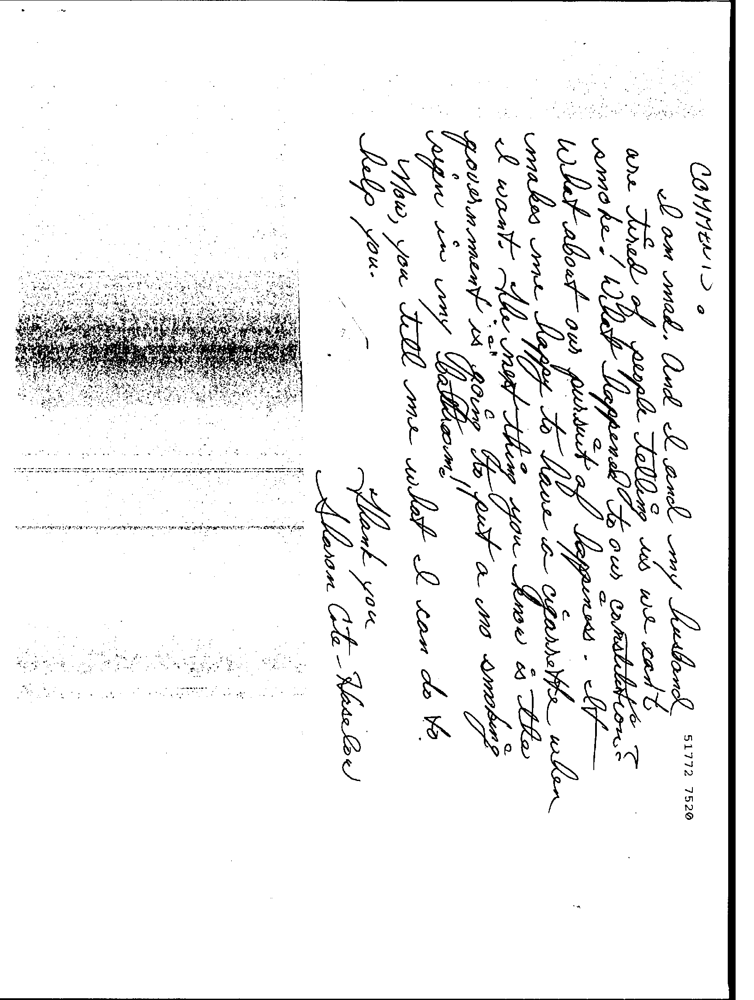 COMMENTS
I am mad. And I and my husband
are tired of people telling us we can't
smoke! What happened to our constitution?
What about our pursuit of happiness. It
makes me happy to have a cigarette when
I want. The next thing you know is the
government is going to put a no smoking
sign in my bathroom!
Now, you tell me what I can do to
help you.
Thank you
Sharon Cote-
51772 7520